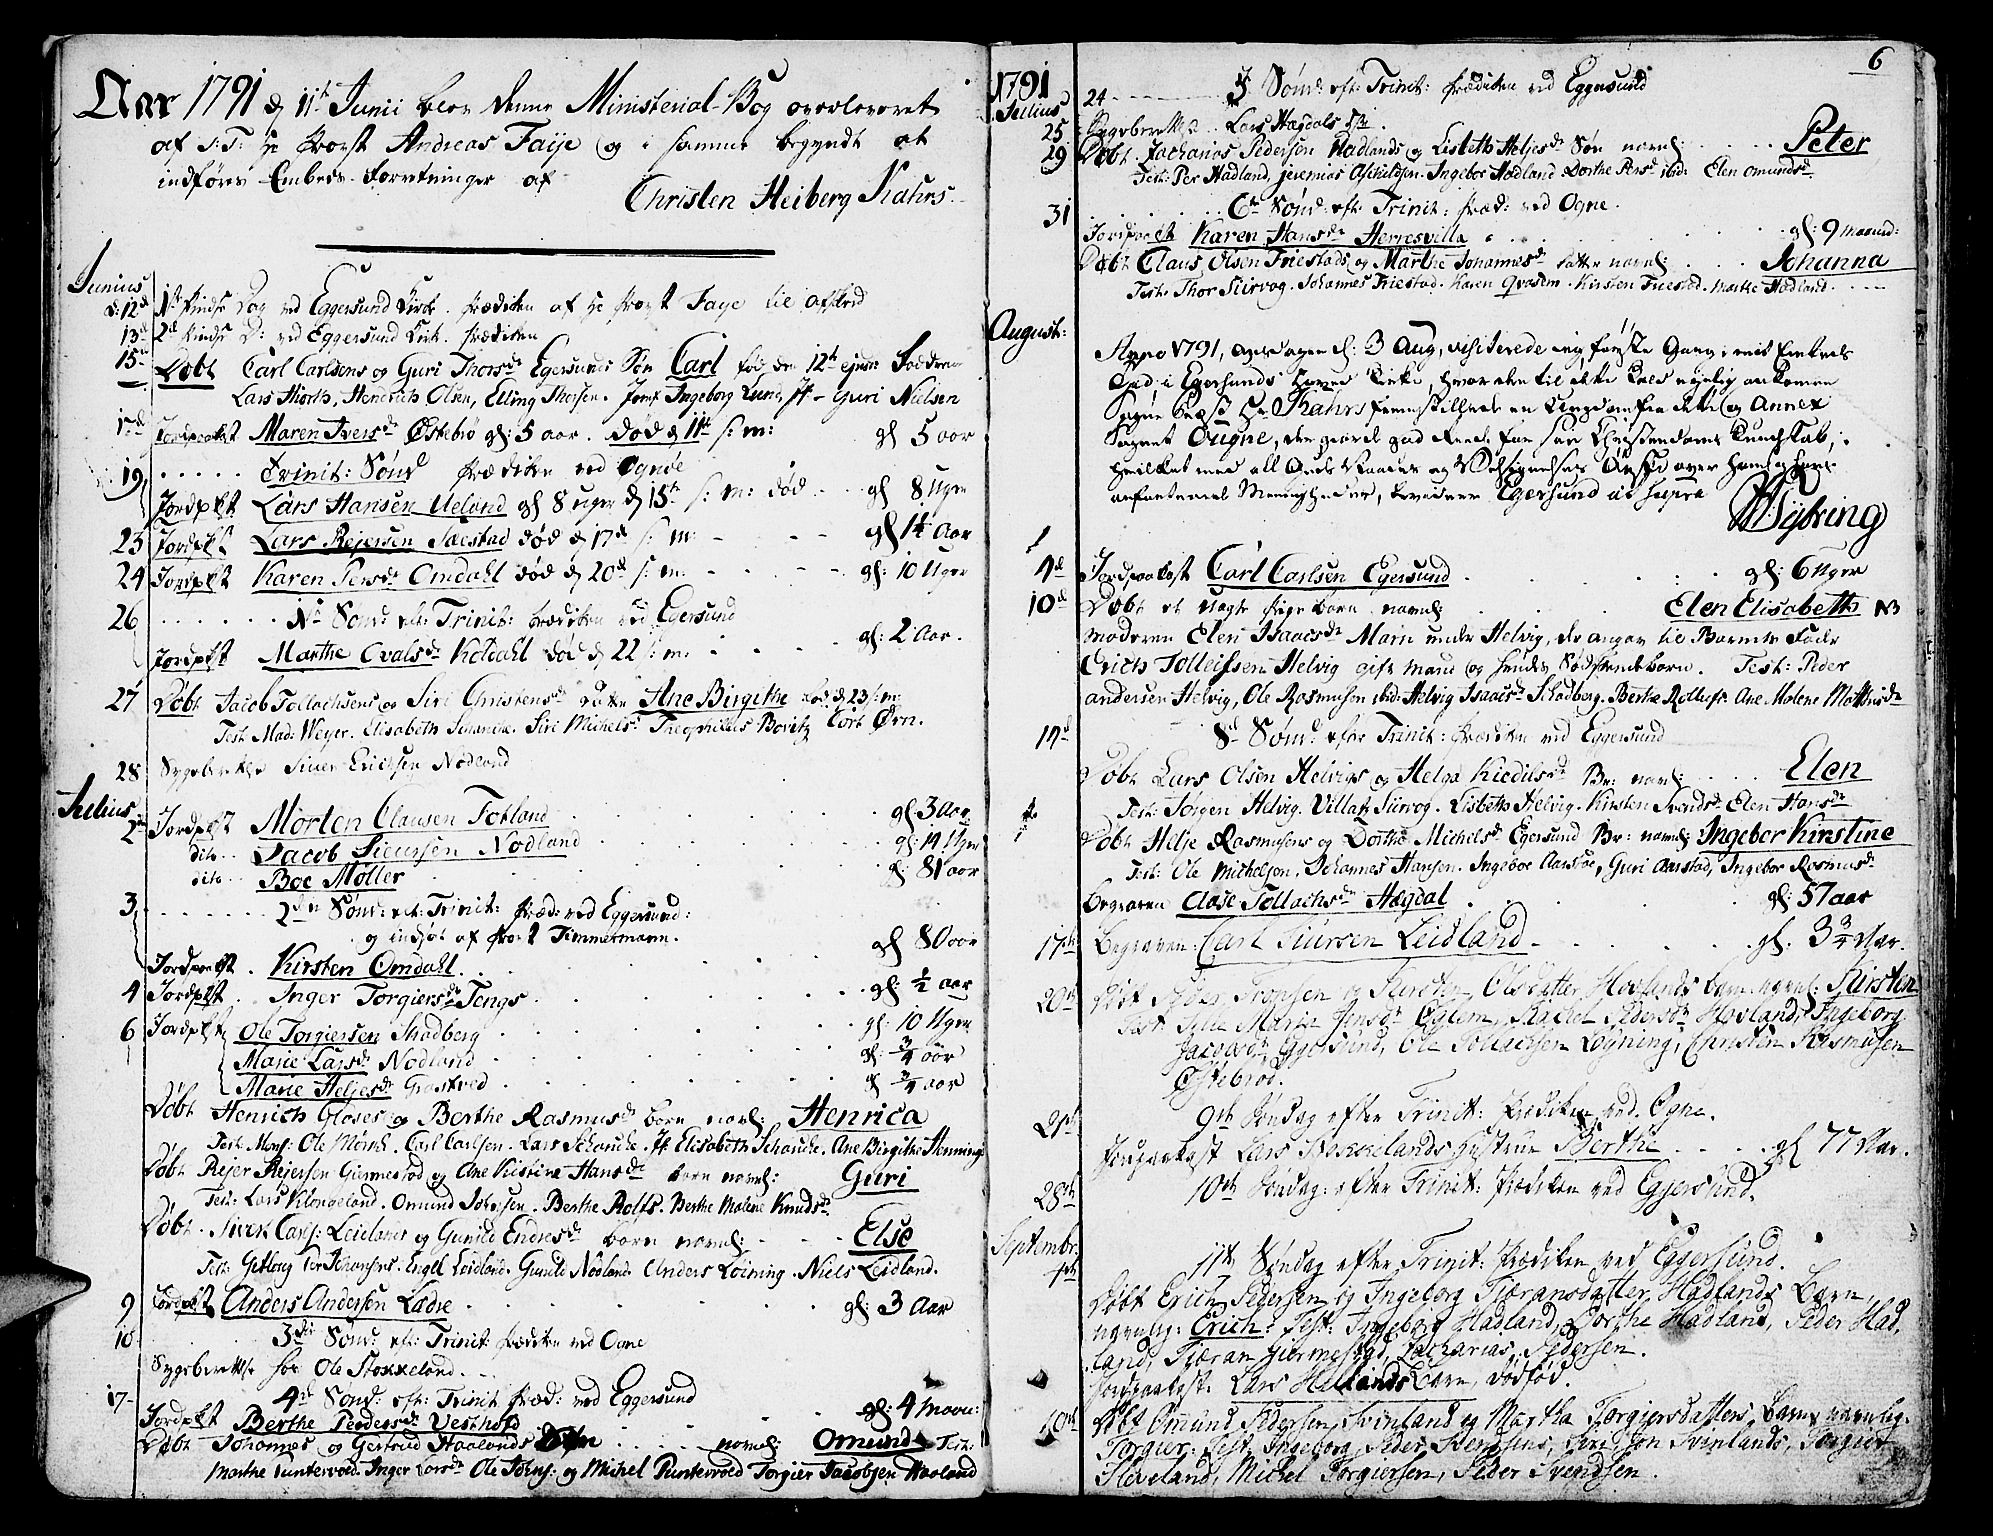 Aar 1791 d 11te Junii blev denne Ministerial-Bog overleveret
af S:T: Hr Provst Andreas Faye og i samme begyndt at
indføres Embeds-Forretninger af
Christen Heiberg Kahrs
Junius
d: 12te 1ste Pindse Dag ved Eggersund Kirk. Prædiken af Hr Provst Faye til afsked
13de 2de Pindse D: ved Eggersund Kirk. Prædiken
15de Døbt Carl Carlsens og Guri Thorsdr Egersunds Søn Carl fød den 12te
Lars Hiorth, Hendrich Olsen, Elling Thorsen. Jomf Ingeborg Lund, Guri Nielsen
17de Jordpaakast Maren Iversdr Østebrø gl: 5 aar. død d 11te s: m: gl 5 aar
19 Trinit: Sønd Prædiken ved Ognøe
Jordpkst Lars Hansen Ueland gl 8 uger d 15te s: m: død gl 8 Uger
23 Jordpkst Lars Rejersen Sæestad død d 17de s: m: gl 1¼ Aar
24 Jordpkst Karen Persdr Omdahl død d 20de s: m: gl: 10 Uger
26 1ste Sønd: eft: Trinit: Prædiken ved Egersund
Jordpkst Marthe Ovalsdr Koldahl død d 22 s: m: gl: 2 Aar.
27 Døbt Jacob Tollachsens og Siri Christensdr Datter Ane Birgithe fød d 23 s: m:
Test. Mad: Weyer. Elisabeth Schanche. Siri Michelsdr Theophilus Bovitz Cort Ørn.
28 Sygeberettelse Siver Erichsen Nodland
Julius
2den Jordpkst Morten Clausen Totland gl: 3 Aar
dito Jacob Sieursen Nodland gl: 14 Uger
dito Boe Møller gl: 81 aar
3 2den Sønd: eft: Trinit: Præd: ved Eggersund:
og indsat af Provst Timmermann.
Jordpaakst. Kirsten Omdahl. gl 80 aar
4 Jordpkst. Inger Torgiersdr Tengs gl: ½ aar
6 Jordpkst Ole Torgiersen Skadberg gl: 10 Uger
Marie Larsdr Nodland gl: ¾ aar
Marie Heljesdr Grastved gl ¾ aar
Døbt Henrich Gloses og Berthe Rasmusdr barn navnl: Henrica
Test. Mons: Ole Mørch. Carl Carlsen. Lars Schanche. Jf Elisabeth Schanche. Ane Birgithe Henning
Døbt Rejer Rejersen Giermestad og Ane Kirstine Hansdr barn navnl: Guri
Test: Lars Klongeland. Omund Johnsen. Berthe Rolfs. Berthe Malene Knudsdr
Døbt. Siver Carls: Leidlands og Gunild Endresdr barn navnl: Else
Test: Engel Leidland. Gunild Nodland. Anders Loining. Niels Leidland.
9 Jordpkst Anders Andersen Ladre gl: 3 Aar
10 3die Sønd: eft: Trinit: Prædiken ved Ogne
Sygeberettelse hos Ole Stokkeland.
17 4de Sønd: eft: Trinit Præd: ved Eggersund
Jordpkst Berthe Pedersdr Vestbold gl: 4 maan:
Døbt Johannes og Gertrud Haalands Søn navnl: Omund Test:
Marthe Puntervold. Inger Larsdr Ole Johns: og Michel Puntervold Torgier Jacobsen Haaland
6
1791
Julius
24 5 Sønd: eft: Trinit: Prædiken ved Eggersund
25 Sygeberettelse Lars Hægdals
29 Døbt. Zacharias Pedersen Hadlands og Lisbeth Heljesdr Søn navnl: Peter
Test: Per Hadland, Jeremias Aschildsen. Ingebor Hadland Dorthe Persdr ibid: Elen Omundsdr
31 6te Sønd: eft: Trinit: Præd: ved Ogne.
Jordpaakst Karen Hansdr Herresvilla gl: 9 maaned:
Døbt Claus Olsen Friestads og Marthe Johannesdr Datter navnl: Johanna
Test: Thor Siirvog. Johannes Friestad. Karen Qvasem. Kirsten Friestad. Marthe Hadland.
August:
Anno 1791, Onsdagen d: 3 Aug, visiterede jeg første Gang i mit Embede
Gud i Egersunds Hoved Kirke, hvor den til dette Kald nylig ankomne
Sogne Præst Hr Kahrs fremstillede en Ungdom fra dette og Annex
Sognet Ougne, der giorde god Rede for sin Christendoms Kundskab,
hvilket med all Guds Naades og Velsignelses Ønske over ham og hans
anfortroede Menigheder, bevidner Egersund ut supra
Sybring
4de Jordpaakast Carl Carlsen Egersund gl: 6 Uger
10de Døbt et uægte Pige barn navnl: Elen Elisabeth NB
Moderen Elen Isaacsdr Marin under Helvig, der angav til Barnets Fader
Erich Tolleifsen Helvig gift Mand og hendes Sødskendebarn. Test: Peder
Andersen Helvig, Ole Rasmusen ibid: Helvig Isaacsdr Skadberg. Berthe Rollufs. Ane Malene Mathisdr
14de 8de Sønd: efter Trinit: Prædiken ved Eggersund
Døbt Lars Olsen Helvigs og Helga Kieldilsdr Br: navnl: Elen
Test: Jørgen Helvig. Villats Siirvog. Lisbeth Helvig. Kirsten Svendsdr Elen Hansdr
Døbt Helje Rasmusens og Dorthe Michelsdr Egersund Br: navnl: Ingebor Kirstine
Test: Ole Michelsen. Johannes Hansen. Ingebor Aarstad, Guri Aarstad, Ingebor Rasmusdr
Begraven Aase Tollachsdr Hægdal gl: 57 aar
17de Begraven: Carl Siursen Leidland gl: 3¾ Aar.
20de Døbt Peder Tronsen og Kirsten Olsdatter Hovlands barn navnl: Kirsten
Test: Sille Maria Jensdr Eglem, Rachel Pedersdr Hovland, Ingeborg
Jacobsdr Eggersund, Ole Tollachsen Løgning, Christen Rasmusen
Østebrød.
21de 9de Søndag efter Trinit: Prædiken ved Ogne.
Jordpaakast Lars Birkelands Hustrue Berthe gl 77 Aar.
28de 10de Søndag: efter Trinit: Prædiken ved Eggersund.
Septembr:
4de 11te Søndag efter Trinit: Prædiken ved Eggersund.
Døbt Erich Pedersen og Ingeborg Tiæransdatter Hadlands Barn,
navnlig: Erich: Test: Ingeborg Hadland, Dorthe Hadland, Peder Had,
land, Tiæran Giermestad, Zacharias Pedersen.
Jordpaakast. Lars Hellands Barn, dødfød.
10de Døbt Omund Pedersen Svinland og Martha Torgiersdatters, Barn navnlig.
Torgier: Test: Ingeborg, Peder Svendsens, Siri, Jon Svinlands, Torgier
Sleveland, Michel Torgiersen, Peder Svendsen.